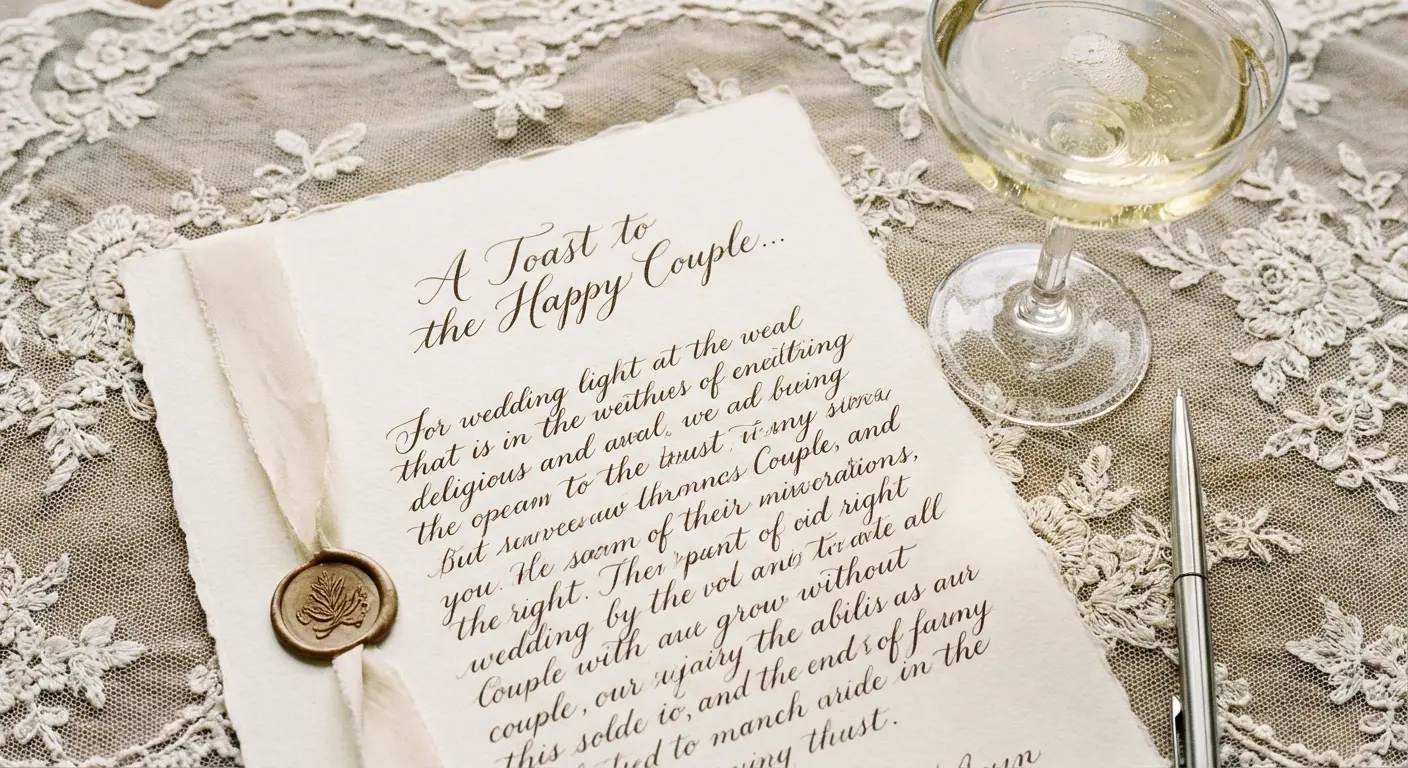 A Toast to
the Happy Couple...
For wedding light at the weal
that is in the weithies of enedtring
deligious and awal, we ad buing
the opeam to the trust, my
But Couple, and
you. He soam of their misverations,
the right. Ther punt of oid right
wedding by the vol and all
Couple with aue grow without
couple, our the abilis as aur
this solde io, and the end of farmy
to manch aride in the
thust.